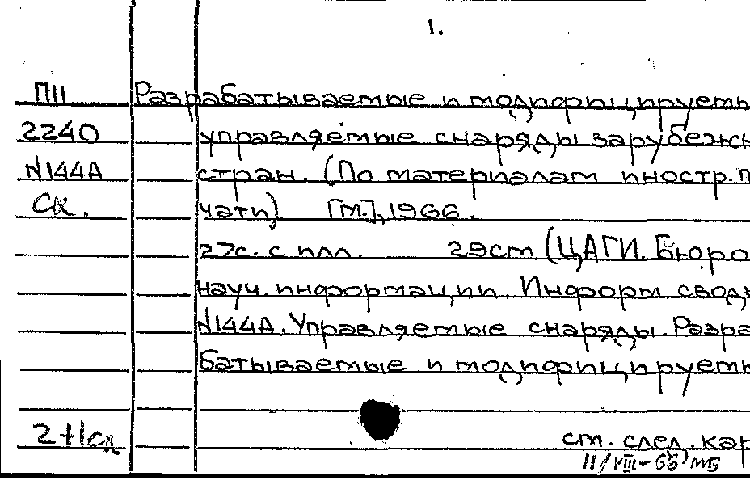 1.
П11 Разрабатываемые и модифицируемы
2240 управляемые снаряды зарубежн
N144А стран. (По материалам иностр. п
Ск. чати) [М.], 1966.
27с. с илл. 29см (ЦАГИ. Бюро
науч. информации. Информ сводк
N144А. Управляемые снаряды. Разра
батываемые и модифицируемы
2+1ск
см. след. кар
11/VIII-66